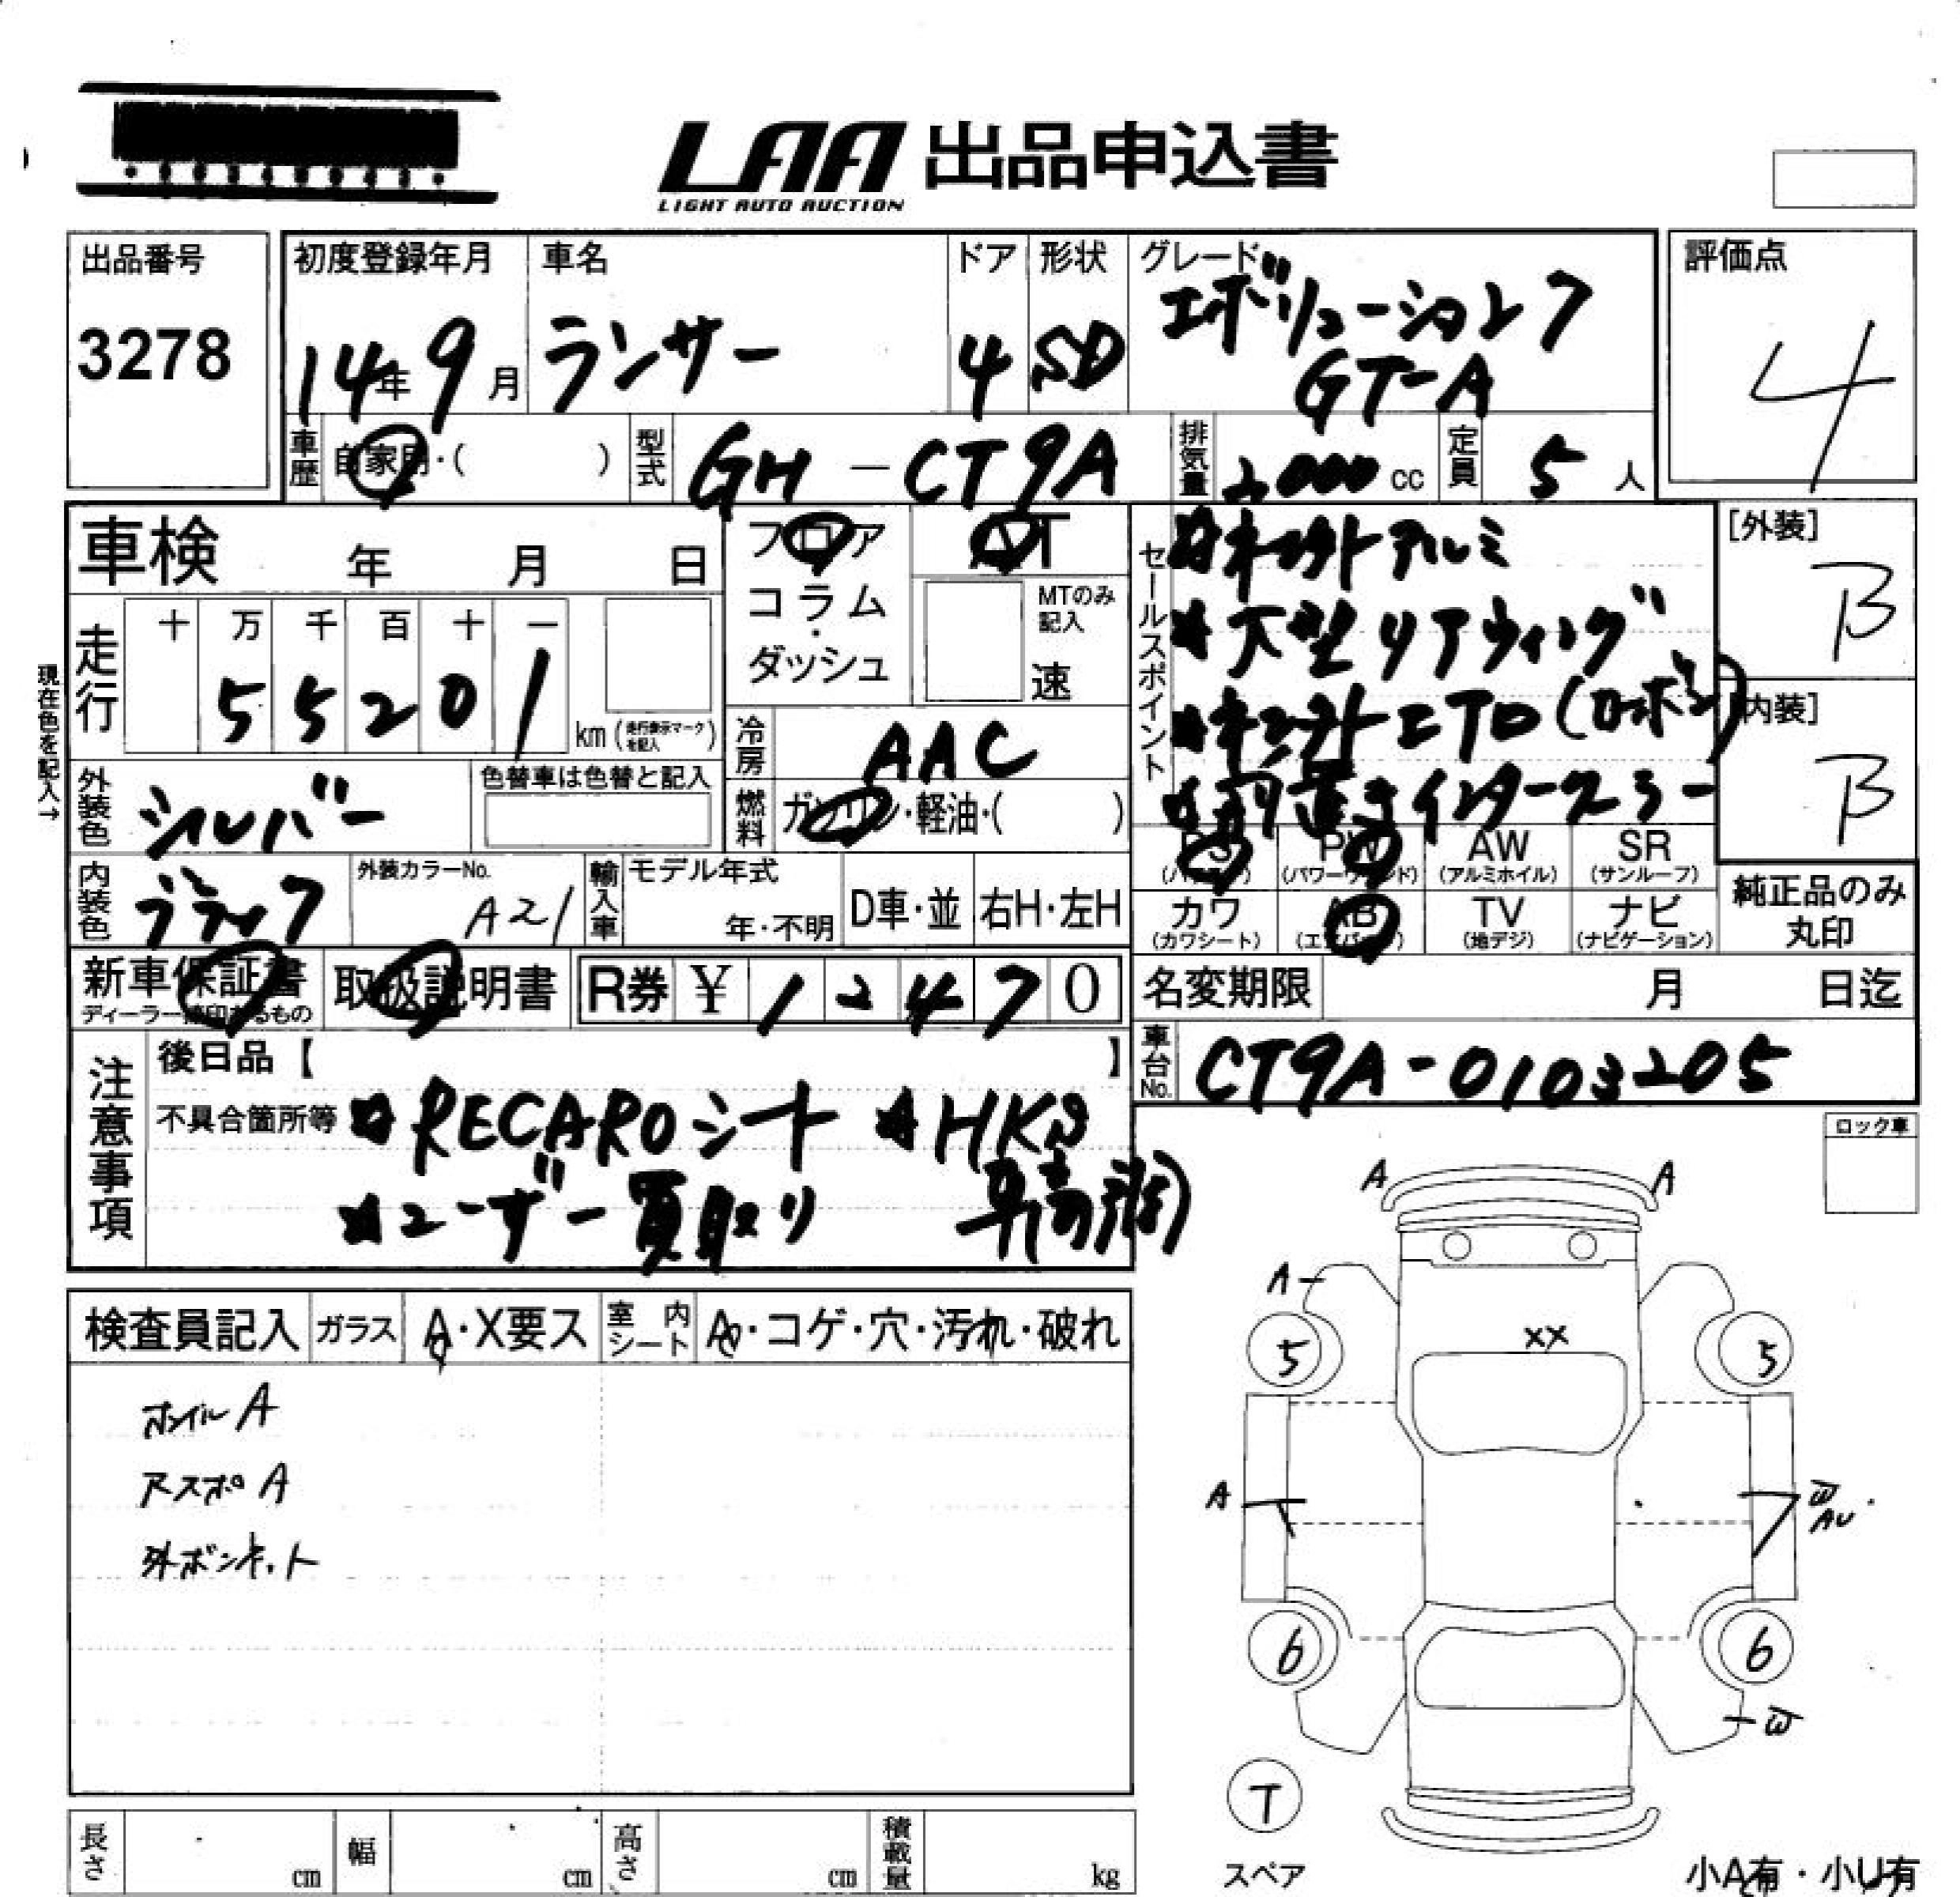 LAA 出品申込書
LIGHT AUTO AUCTION
出品番号
3278
初度登録年月
14年 9月
車名
ランサー
ドア
4
形状
SD
グレード
エボリューション7
GT-A
評価点
4
車歴 自家用・( )
型式 GH-CT9A
排気量 2000 cc
定員 5 人
車検 年 月 日
フロア
コラム
・
ダッシュ
AT
MTのみ
記入
速
セールスポイント
☆ アルミ
☆大型リアウィング
☆ エアロ
☆前置きインタークーラー
[外装]
B
[内装]
B
現在色を記入→
走行
十 万 千 百 十 一
5 5 2 0 1
km(走行表示マークを記入)
冷房 AAC
燃料 ガソリン・軽油・( )
外装色 シルバー
色替車は色替と記入
内装色 ブラック
外装カラーNo.
A21
輸入車
モデル年式
年・不明
D車・並
右H・左H
PS
(パワステ)
PW
(パワーウィンド)
AW
(アルミホイル)
SR
(サンルーフ)
カワ
(カワシート)
AB
(エアバッグ)
TV
(地デジ)
ナビ
(ナビゲーション)
純正品のみ
丸印
新車保証書
ディーラー捺印あるもの
取扱説明書
R券 ¥ 1 2 4 7 0
名変期限 月 日迄
車台No. CT9A-0103205
注意事項
後日品【 】
不具合箇所等 ☆RECAROシート ☆HKS
☆ユーザー買取り 車高調
ロック車
検査員記入
ガラス A・X要ス
室内シート A・コゲ・穴・汚れ・破れ
ホイルA
アスポA
外ボンネット
A A
A
XX
5 5
A
W
AU
6 6
W
T
スペア
小A有・小U有
長さ cm
幅 cm
高さ cm
積載量 kg